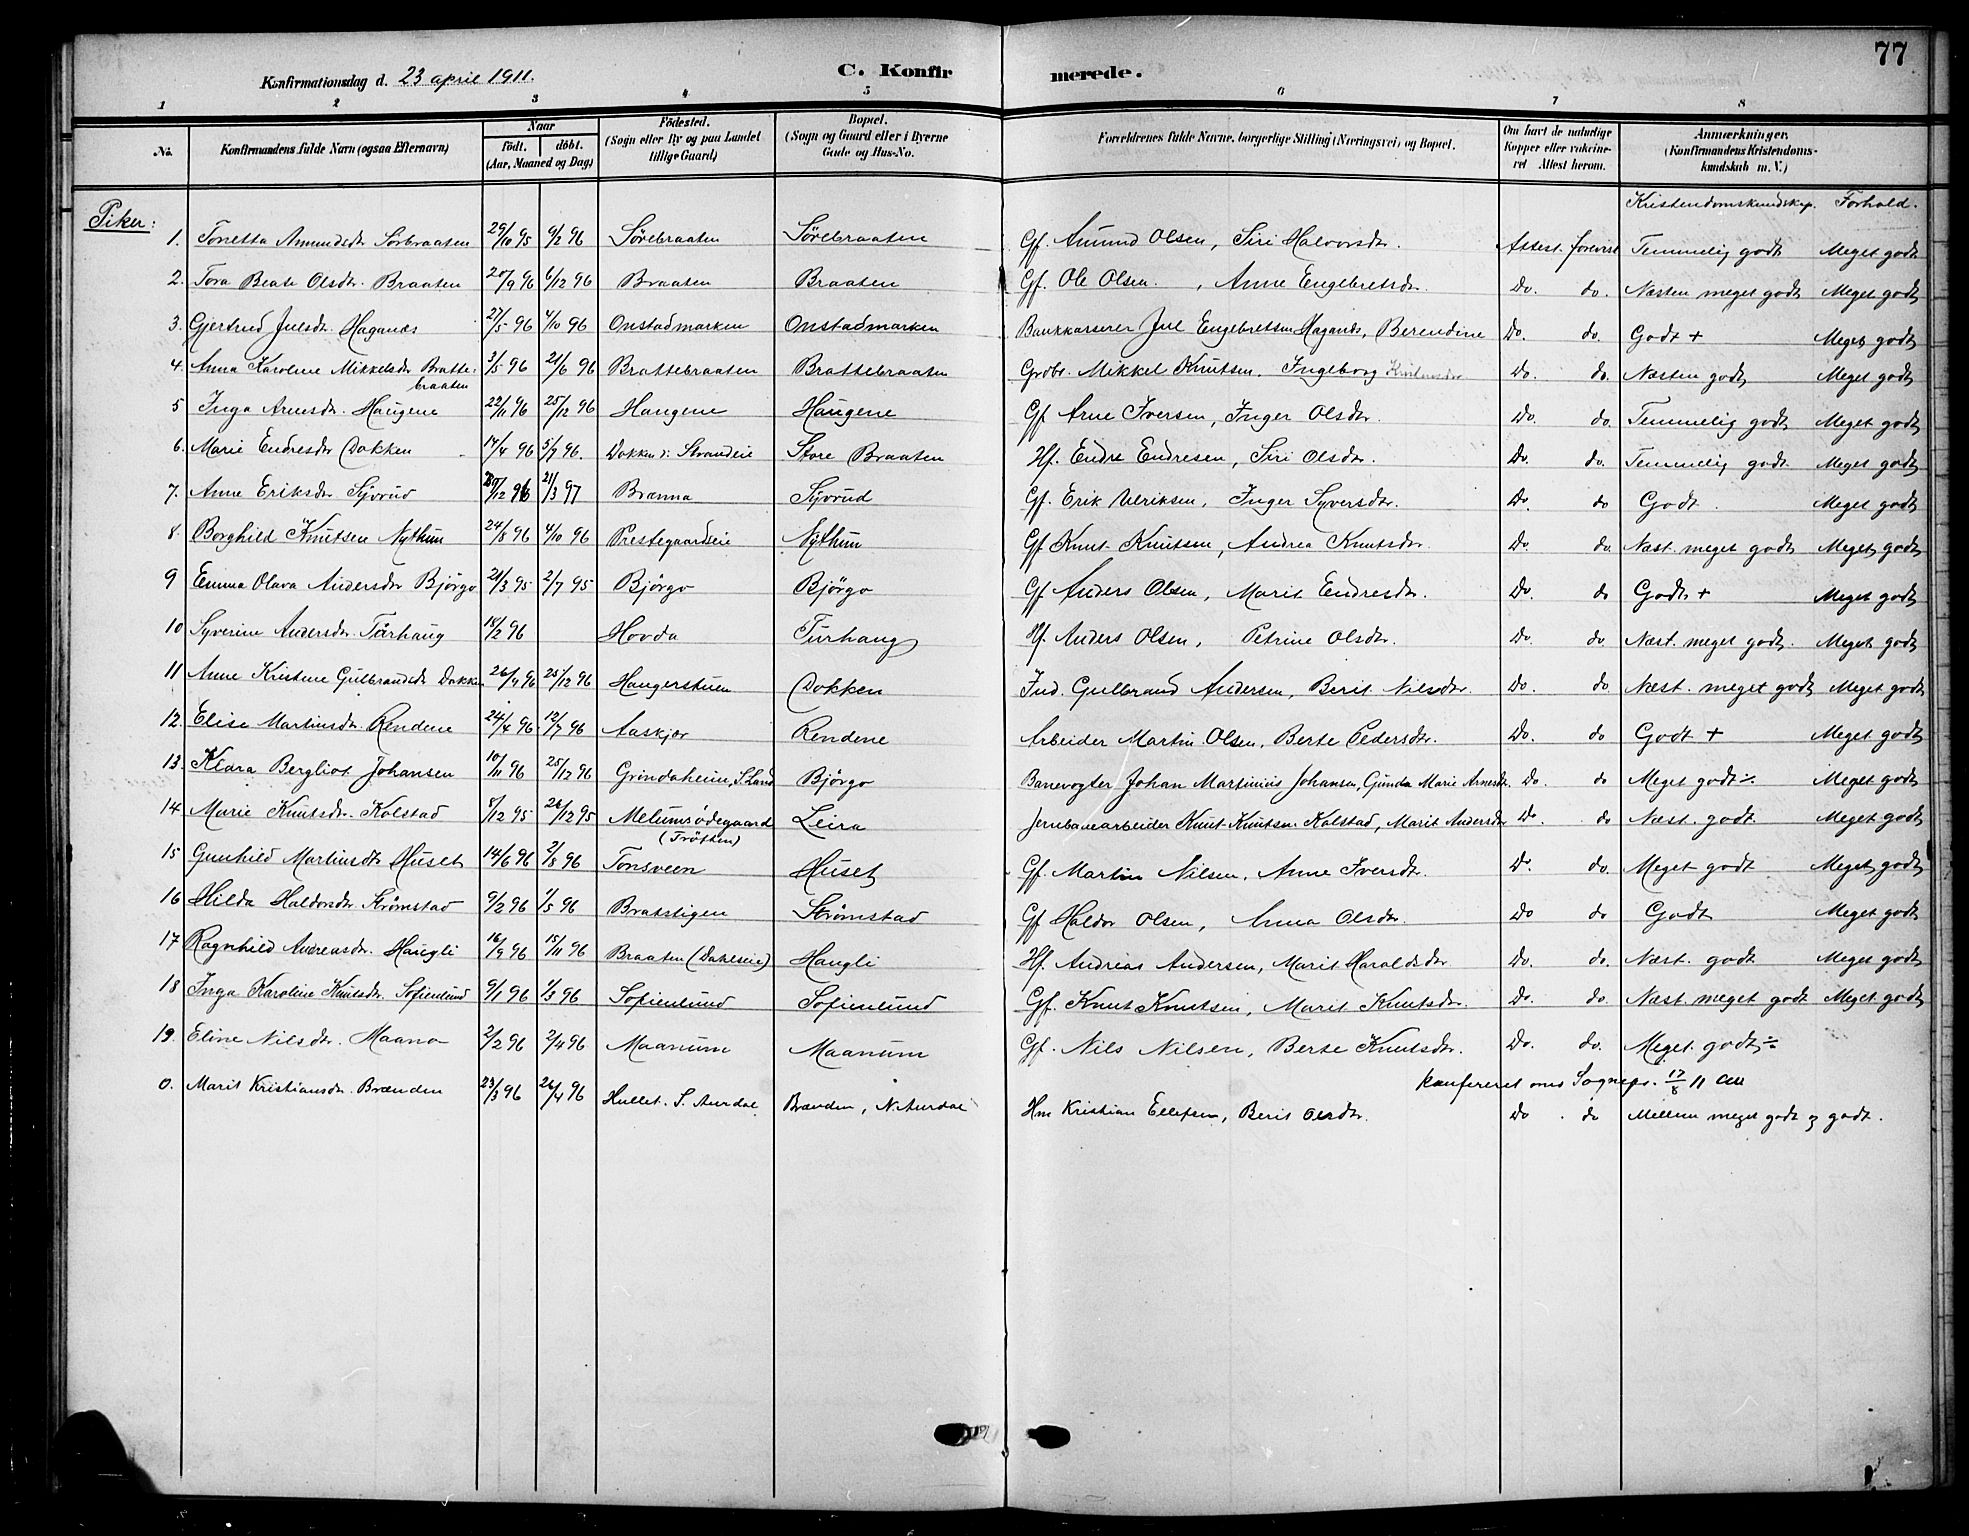 77
Konfirmationsdag d. 23 april 1911. C. Konfirmerede.
1 2 3 4 5 6 7 8
No. Konfirmandens fulde Navn (ogsaa Efternavn) Naar födt. döbt. (Aar, Maaned og Dag) Födested. (Sogn eller By og paa Landet tillige Gaard) Bopæl. (Sogn og Gaard eller i Byerne Gade og Hus-No. Foreldrenes fulde Navne, borgerlige Stilling (Næringsvei) og Bopæl. Om havt de naturlige Kopper eller vakcineret Attest herom. Anmærkninger. (Konfirmandens Kristendomskundskab m. V.)
Kristendomskundskap. Forhold.
Piker:
1. Tonetta Amundsdr Sørbraaten 29/10 95 9/2 96 Sørebraaten Sørebraaten Gf. Amund Olsen, Siri Halvorsdr. Attest forevist Temmelig godt Meget godt
2. Tora Beate Olsdr. Braaten 20/9 96 6/12 96 Braaten Braaten Gf. Ole Olsen, Anne Engebretsdr. Do. do. Næsten meget godt Meget godt
3. Gjertrud Julsdr. Haganæs 27/5 96 4/10 96 Onstadmarken Onstadmarken Bankkaserer Jul Engebretsen Haganæs, Berendine Do. do. Godt + Meget godt
4. Anna Karoline Mikkelsdr Brattebraaten 3/5 96 21/6 96 Brattebraaten Brattebraaten Grdbr. Mikkel Knutsen, Ingeborg Kristensdr Do. do. Næsten godt Meget godt
5 Inga Arnesdr. Haugene 22/11 96 25/12 96 Haugene Haugene Gf Arne Iversen, Inger Olsdr. Do. do. Temmelig godt Meget godt
6. Marie Endresdr Dokken 14/4 96 5/7 96. Dokken i Strandeie Store Braaten Hf. Endre Endresen, Siri Olsdr. Do. do. Temmelig godt. Meget godt
7. Anne Eriksdr Syvrud 29/12 96 21/3 97 Brænna Syvrud Gf. Erik Ulriksen, Inger Syversdr. Do. do Godt. Meget godt
8. Borghild Knutsen Nythun 24/8 96 4/10 96 Prestegaardseie Nythun Gf Knut Knutsen, Andrea Knutsdr. Do. do. Næst. meget godt Meget godt
9 Emma Olava Andersdr Bjørgo 21/3 95 2/7 95 Bjørgo Bjørgo Gf Anders Olsen, Marit Endresdr. Do. do Godt + Meget godt
10 Syverine Andersdr. Turhaug 15/2 96 Hovda Turhaug Hf. Anders Olsen, Petrine Olsdr. Do. do. Næst. meget godt. Meget godt
11 Anne Kristine Gulbrandsdr Dokken 26/4 96 25/12 96 Haugerstuen Dokken Ind. Gulbrand Andersen, Berit Nilsdr. Do. do. Næst. meget godt Meget godt
12. Elise Martinsdr. Rendene 24/4 96 12/7 96 Aaskjær Rendene Arbeider Martin Olsen, Berte Pedersdr. Do. do Godt + Meget godt
13. Klara Bergliot Johansen 10/11 96 25/12 96 Grindaheim, S. Land Bjørgo Banevogter Johan Martinius Johansen, Gunda Marie Arnesdr. Do. do Meget godt ÷ Meget godt
14 Marie Knutsdr. Kolstad 8/12 95 26/12 95 Melumsødegaard (Trötten) Leira Jernbanearbeider Knut Knutsen Kolstad, Marit Andersdr Do. do Næst. godt Meget godt
15 Gunhild Martinsdr Huset 14/6 96 2/8 96 Tonsveen Huset Gf. Martin Nilsen, Anne Iversdr. Do. do. Meget godt Meget godt
16 Hilda Haldorsdr Strømstad 9/2 96 1/5 96 Bratstigen Strømstad Gf Haldor Olsen, Anna Olsdr. Do do Godt Meget godt
17 Ragnhild Andreasdr. Haugli 16/9 96 15/11 96 Braaten (Dahlseie) Haugli Hf. Andreas Andersen, Marit Haraldsdr Do. do. Næst. godt Meget godt
18 Inga Karoline Knutsdr. Sofienlund 9/1 96 1/3 96 Sofienlund Sofienlund Gf. Knut Knutsen, Marit Knutsdr. Do. do. Næst. meget godt Meget godt
19. Eline Nilsdr. Maano 2/2 96 2/4 96 Maanum Maanum Gf. Nils Nilsen, Berte Knutsdr. Do. do. Meget godt ÷
konfereret oms Sognepr. 17/6 11
0. Marit Kristiansdr. Brænden 23/3 96 26/4 96 Hullet. S. Aurdal Brænden, N. Aurdal Hm Kristian Ellefsen, Berit Olsdr. Do do Mellem meget godt og godt.